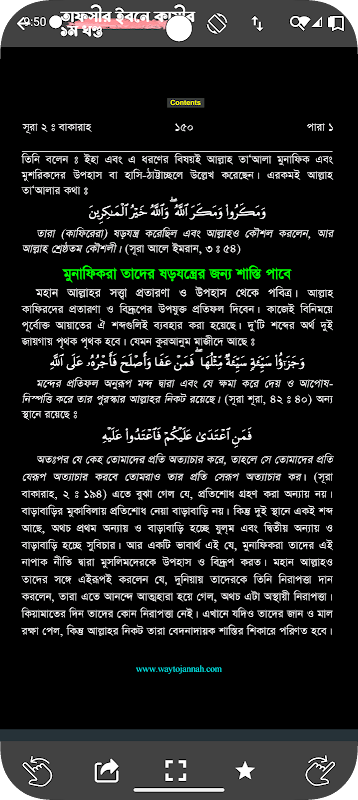 9:50
তাফসীর ইবনে কাসীর
১ম খণ্ড
Contents
সূরা ২ ঃ বাকারাহ ১৫০ পারা ১
তিনি বলেন ঃ ইহা এবং এ ধরণের বিষয়ই আল্লাহ তা'আলা মুনাফিক এবং
মুশরিকদের উপহাস বা হাসি-ঠাট্টাচ্ছলে উল্লেখ করেছেন। এরকমই আল্লাহ
তা'আলার কথা ঃ
وَمَكَرُواْ وَمَكَرَ اللَّهُ ۖ وَاللَّهُ خَيْرُ الْمَـٰكِرِينَ
তারা (কাফিরেরা) ষড়যন্ত্র করেছিল এবং আল্লাহও কৌশল করলেন, আর
আল্লাহ শ্রেষ্ঠতম কৌশলী। (সূরা আলে ইমরান, ৩ ঃ ৫৪)
মুনাফিকরা তাদের ষড়যন্ত্রের জন্য শাস্তি পাবে
মহান আল্লাহর সত্ত্বা প্রতারণা ও উপহাস থেকে পবিত্র। আল্লাহ
কাফিরদের প্রতারণা ও বিদ্রূপের উপযুক্ত প্রতিফল দিবেন। কাজেই বিনিময়ে
পূর্বোক্ত আয়াতের ঐ শব্দগুলিই ব্যবহার করা হয়েছে। দু'টি শব্দের অর্থ দুই
জায়গায় পৃথক পৃথক হবে। যেমন কুরআনুম মাজীদে আছে ঃ
وَجَزَٰٓؤُا۟ سَيِّئَةٍ سَيِّئَةٌ مِّثْلُهَا ۖ فَمَنْ عَفَا وَأَصْلَحَ فَأَجْرُهُۥ عَلَى اللَّهِ
মন্দের প্রতিফল অনুরূপ মন্দ দ্বারা এবং যে ক্ষমা করে দেয় ও আপোষ-
নিস্পত্তি করে তার পুরস্কার আল্লাহর নিকট রয়েছে। (সূরা শূরা, ৪২ ঃ ৪০) অন্য
স্থানে রয়েছে ঃ
فَمَنِ اعْتَدَىٰ عَلَيْكُمْ فَاعْتَدُوا۟ عَلَيْهِ
অতঃপর যে কেহ তোমাদের প্রতি অত্যাচার করে, তাহলে সে তোমাদের প্রতি
যেরূপ অত্যাচার করবে তোমরাও তার প্রতি সেরূপ অত্যাচার কর। (সূরা
বাকারাহ, ২ ঃ ১৯৪) এতে বুঝা গেল যে, প্রতিশোধ গ্রহণ করা অন্যায় নয়।
বাড়াবাড়ির মুকাবিলায় প্রতিশোধ নেয়া বাড়াবাড়ি নয়। কিন্তু দুই স্থানে একই শব্দ
আছে, অথচ প্রথম অন্যায় ও বাড়াবাড়ি হচ্ছে যুল্‌ম এবং দ্বিতীয় অন্যায় ও
বাড়াবাড়ি হচ্ছে সুবিচার। আর একটি ভাবার্থ এই যে, মুনাফিকরা তাদের এই
নাপাক নীতি দ্বারা মুসলিমদেরকে উপহাস ও বিদ্রূপ করত। মহান আল্লাহও
তাদের সঙ্গে এইরূপই করলেন যে, দুনিয়ায় তাদেরকে তিনি নিরাপত্তা দান
করলেন, তারা এতে আনন্দে আত্মহারা হয়ে গেল, অথচ এটা অস্থায়ী নিরাপত্তা।
কিয়ামাতের দিন তাদের কোন নিরাপত্তা নেই। এখানে যদিও তাদের জান ও মাল
রক্ষা পেল, কিন্তু আল্লাহর নিকট তারা বেদনাদায়ক শাস্তির শিকারে পরিণত হবে।
www.waytojannah.com